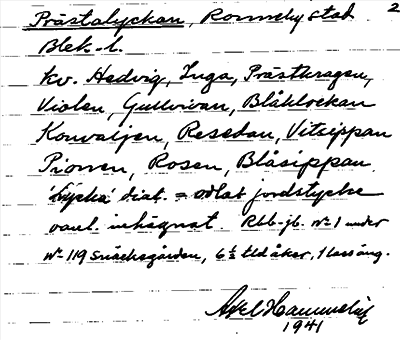 Prästalyckan, Ronneby stad 2
Blek. l.
kv. Hedvig, Inga, Prästkragen,
Violen, Gullvivan, Blåklockan
Konvaljen, Resedan, Vitsippan
Pionen, Rosen, Blåsippan.
'lycka' dial. = odlat jordstycke
vanl. inhägnat. Rbb-jb. No 1 under
No 119 Snäcksgården, 6½ tld åker, 1 lass äng.
Axel Hammelin
1941